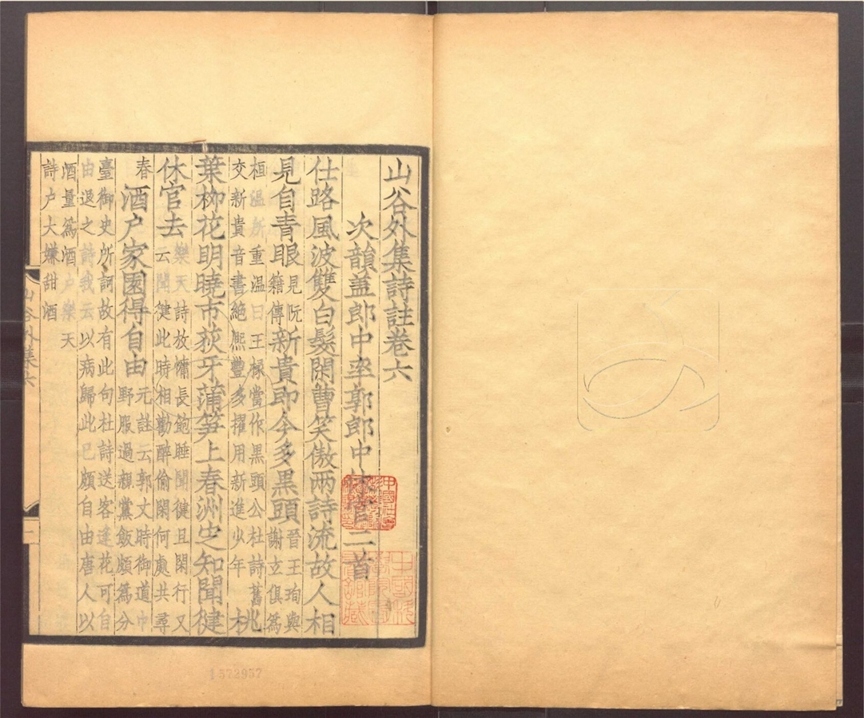 山谷外集詩註卷六
次韻蓋郎中率郭郎中休官二首
仕路風波雙白髮閑曹笑傲兩詩流故人相
見自青眼見阮籍傳新貴即今多黑頭晉王珣與謝俱為
桓溫所重溫曰王掾作黑頭公杜詩舊
交新貴音書絕熙豐多擢用新進少年桃
葉柳花明曉市荻牙蒲笋上春洲定知聞健
休官去樂天詩放慵長飽睡聞健且閑行又
云聞健此時相勸醉偷閑何處共尋
春酒户家園得自由元註云郭文時御道中
野服過黨飯頗為分
臺御史所訶故有此句杜詩送客逢花可自
由退之詩我云以病歸此已頗自由唐人以
酒量為酒户樂天
詩户大嫌甜酒
山谷外集六
1572957